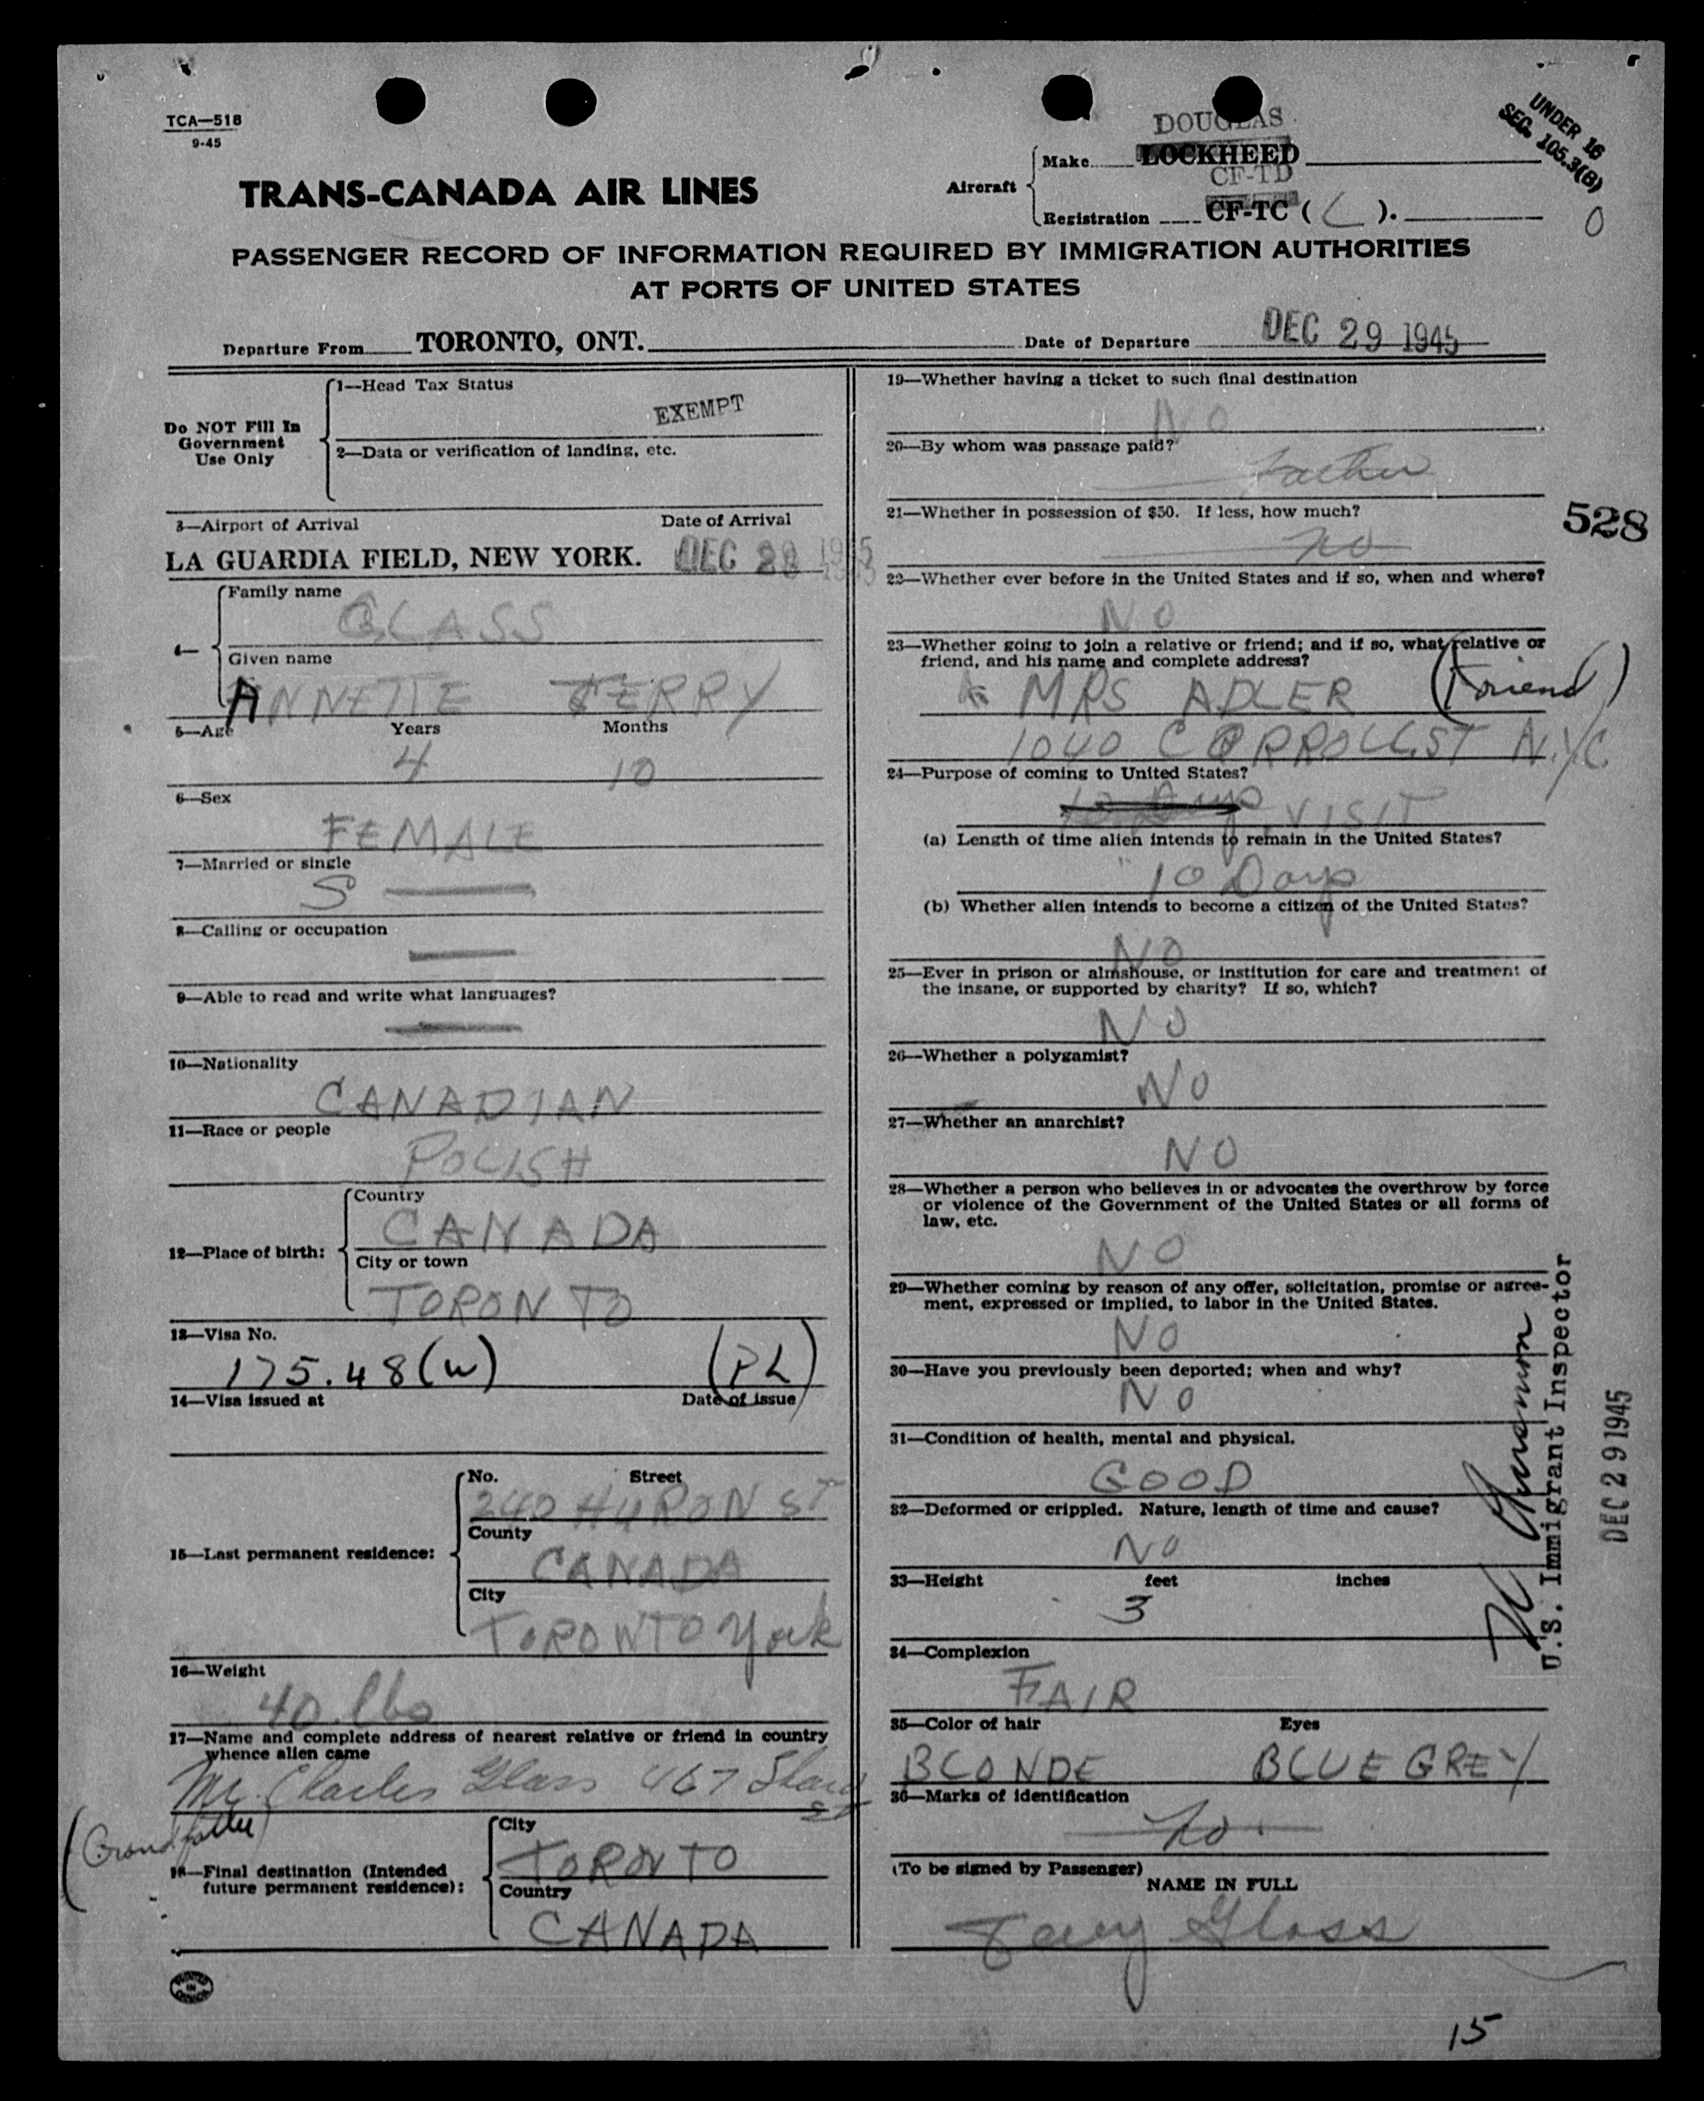 TCA—518
9-45
UNDER 16
SEC. 105.3(B)
0
TRANS-CANADA AIR LINES
DOUGLAS
Aircraft
Make LOCKHEED
CF-TD
Registration CF-TC ( L ).
PASSENGER RECORD OF INFORMATION REQUIRED BY IMMIGRATION AUTHORITIES
AT PORTS OF UNITED STATES
Departure From TORONTO, ONT. Date of Departure DEC 29 1945
Do NOT Fill In
Government
Use Only
1—Head Tax Status
EXEMPT
2—Data or verification of landing, etc.
3—Airport of Arrival Date of Arrival
LA GUARDIA FIELD, NEW YORK. DEC 1945
4—
Family name
GLASS
Given name
ANNETTE TERRY
5—Age Years Months
4 10
6—Sex
FEMALE
7—Married or single
S
8—Calling or occupation
9—Able to read and write what languages?
10—Nationality
CANADIAN
11—Race or people
POLISH
12—Place of birth:
Country
CANADA
City or town
TORONTO
13—Visa No.
175.48(W) (PL)
14—Visa issued at Date of issue
15—Last permanent residence:
No. Street
240 HURON ST
County
CANADA
City
TORONTO York
16—Weight
40 lbs
17—Name and complete address of nearest relative or friend in country
whence alien came
Mr. Charles Glass 467
St
(Grandfather)
18—Final destination (Intended
future permanent residence):
City
TORONTO
Country
CANADA
19—Whether having a ticket to such final destination
NO
20—By whom was passage paid?
Father
21—Whether in possession of $50. If less, how much?
No
528
22—Whether ever before in the United States and if so, when and where?
NO
23—Whether going to join a relative or friend; and if so, what relative or
friend, and his name and complete address?
MRS ADLER (Friend)
1040 CARROLL ST N.Y.C.
24—Purpose of coming to United States?
10 Days VISIT
(a) Length of time alien intends to remain in the United States?
10 Days
(b) Whether alien intends to become a citizen of the United States?
NO
25—Ever in prison or almshouse, or institution for care and treatment of
the insane, or supported by charity? If so, which?
NO
26—Whether a polygamist?
NO
27—Whether an anarchist?
NO
28—Whether a person who believes in or advocates the overthrow by force
or violence of the Government of the United States or all forms of
law, etc.
NO
29—Whether coming by reason of any offer, solicitation, promise or agree-
ment, expressed or implied, to labor in the United States.
NO
30—Have you previously been deported; when and why?
NO
31—Condition of health, mental and physical.
GOOD
32—Deformed or crippled. Nature, length of time and cause?
NO
33—Height feet inches
3
34—Complexion
FAIR
35—Color of hair Eyes
BLONDE BLUE GREY
36—Marks of identification
No.
(To be signed by Passenger)
NAME IN FULL
Terry Glass
U.S. Immigrant Inspector
DEC 29 1945
PRINTED
IN
CANADA
15